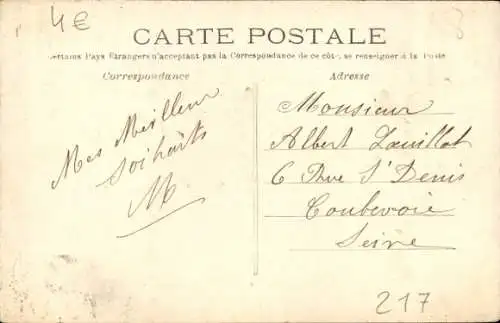 4€
CARTE POSTALE
Certains Pays Etrangers n'acceptant pas la Correspondance de ce côté, se renseigner à la Poste
Correspondance
Adresse
Mes Meilleurs
Soihaits
M
Monsieur
Albert
6 Rue St Denis
Coubevoie
Seine
217